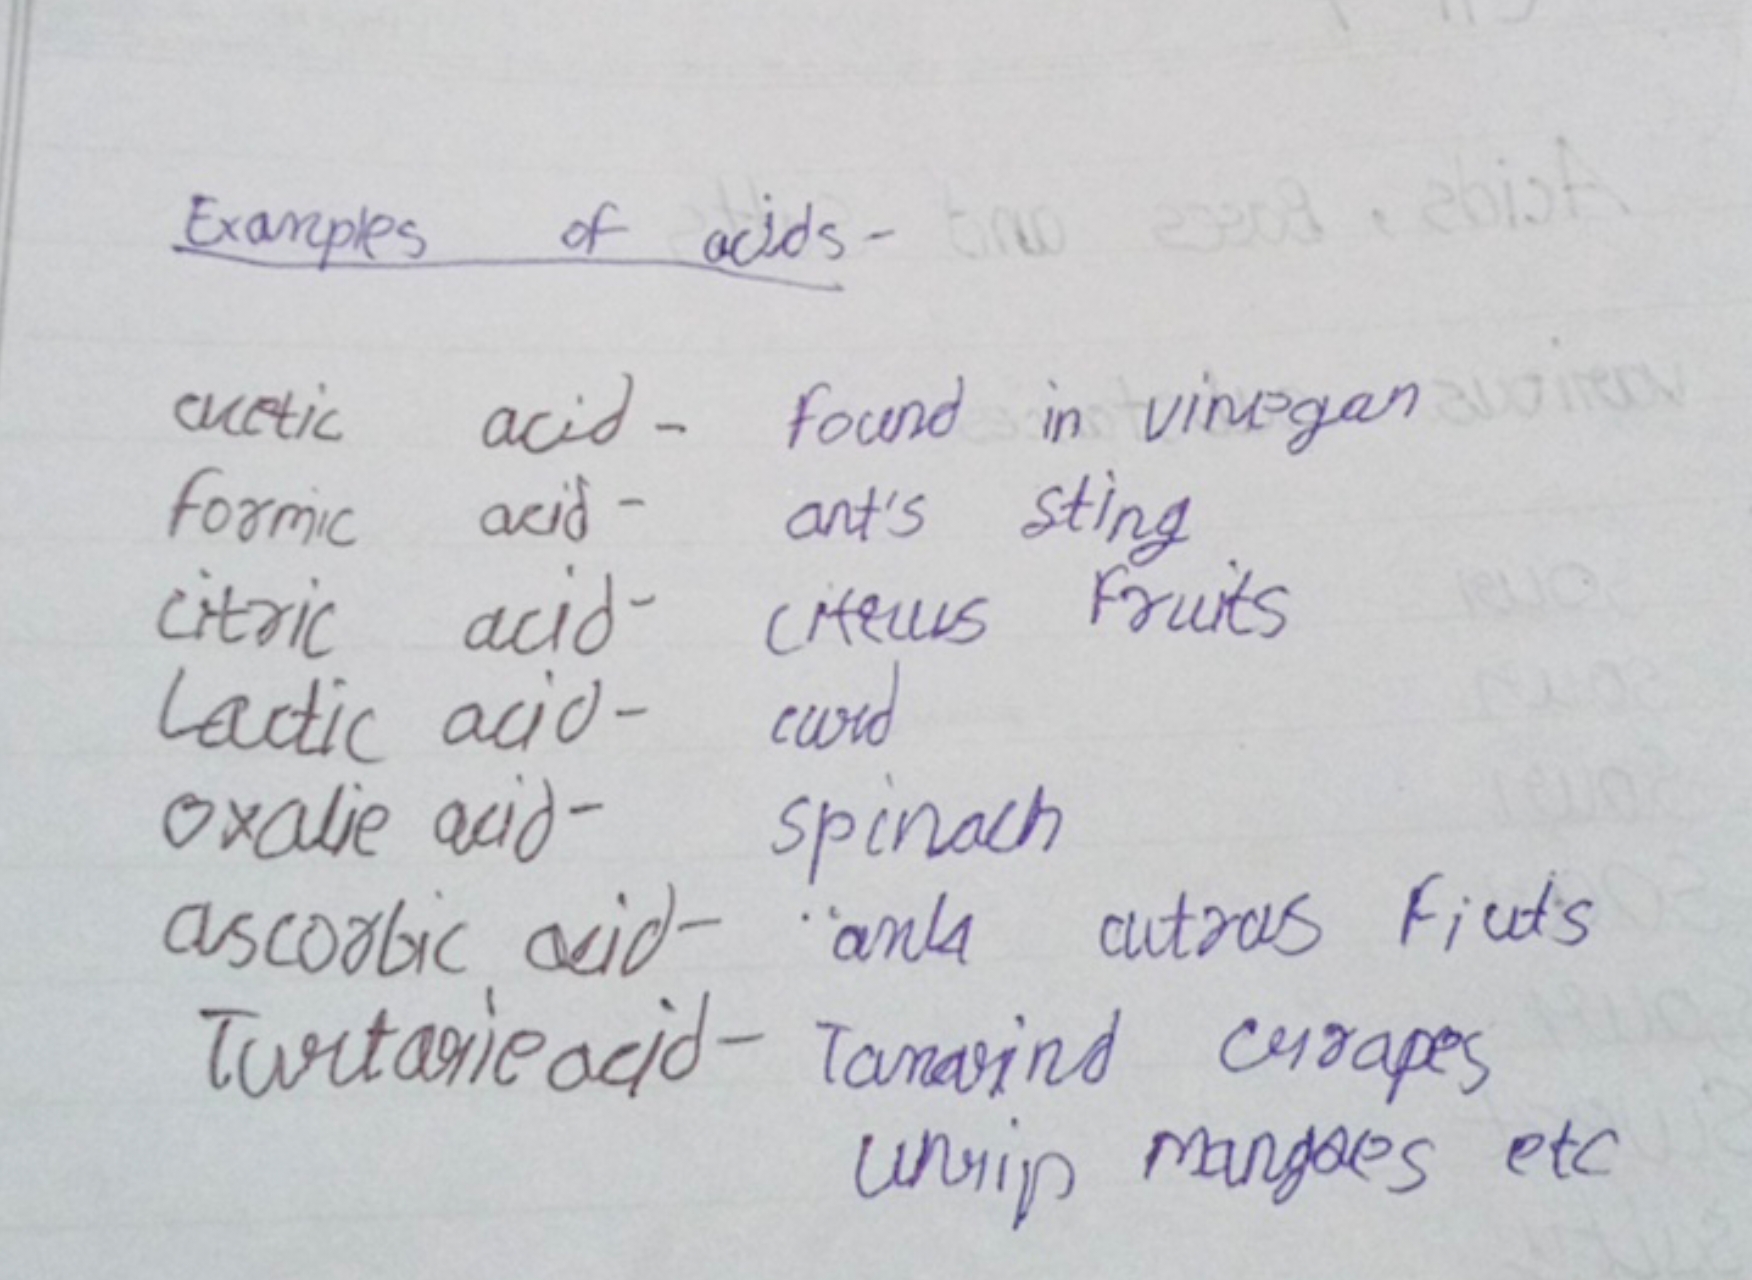 Examples of acids-
acetic acid - found in vinegar
Formic acid - ant's sting
citric acid- citrus Fruits
Lactic acid- curd
oxalic acid- spinach
ascorbic acid- amla citrus Fruits
Tartaric acid- Tamarind Grapes
unrip mangoes etc